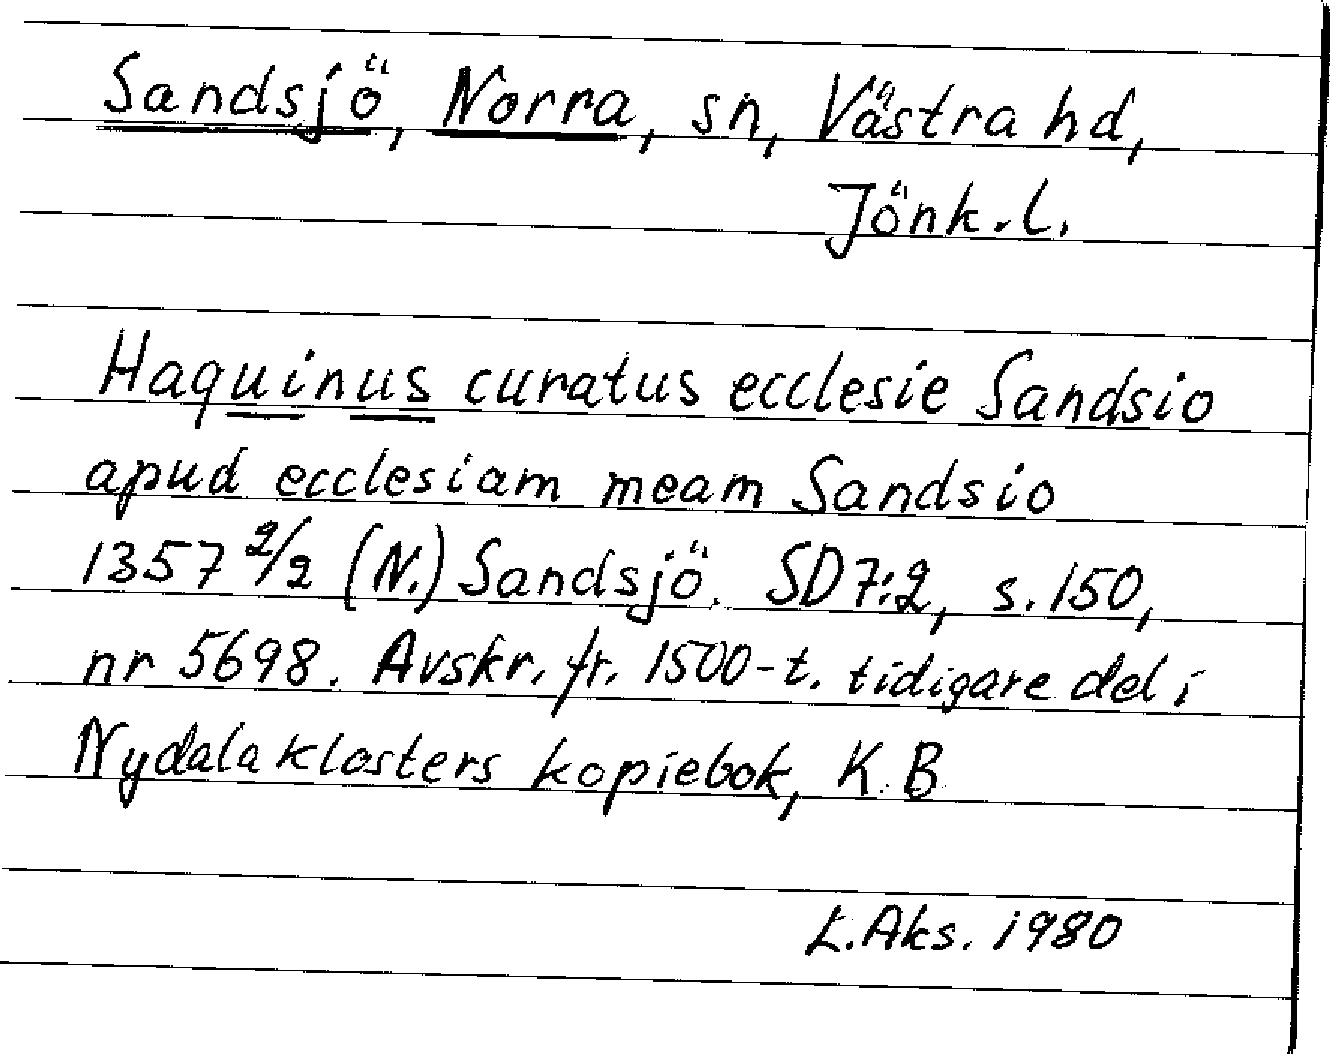 Sandsjö, Norra, sn, Västra hd,
Jönk.l.
Haquinus curatus ecclesie Sandsio
apud ecclesiam meam Sandsio
1357 2/2 (N.) Sandsjö. SD 7:2, s. 150,
nr 5698. Avskr. fr. 1500-t. tidigare del i
Nydala klosters kopiebok, K.B
L. Aks. 1980